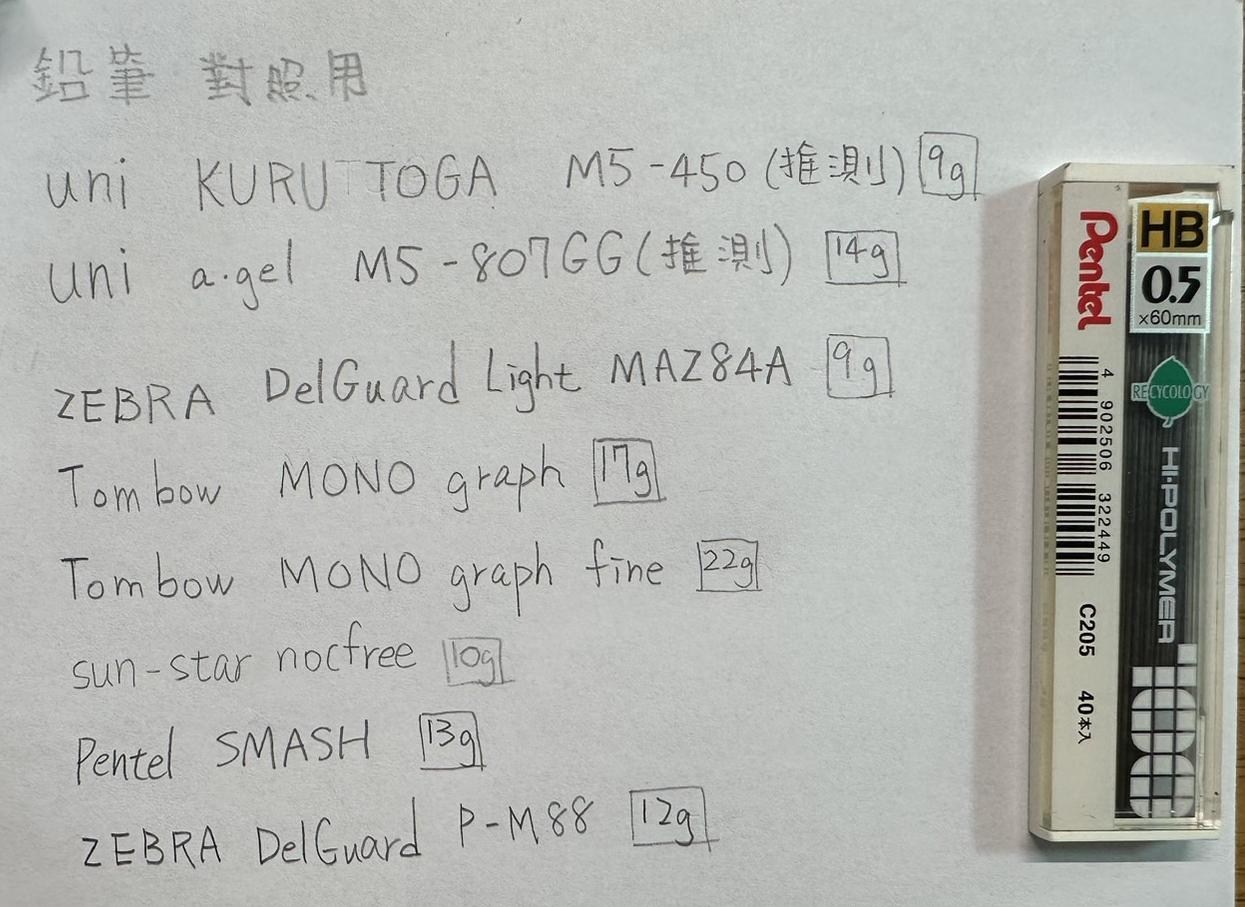 鉛筆 對照用
uni KURUTOGA M5-450 (推測) 9g
uni a·gel M5-807GG (推測) 14g
ZEBRA DelGuard Light MAZ84A 9g
Tombow MONO graph 17g
Tombow MONO graph fine 22g
sun-star nocfree 10g
Pentel SMASH 13g
ZEBRA DelGuard P-M88 12g
Pentel
4 902506 322449
C205 40本入
HB
0.5
×60mm
RECYCOLOGY
HI-POLYMER
100